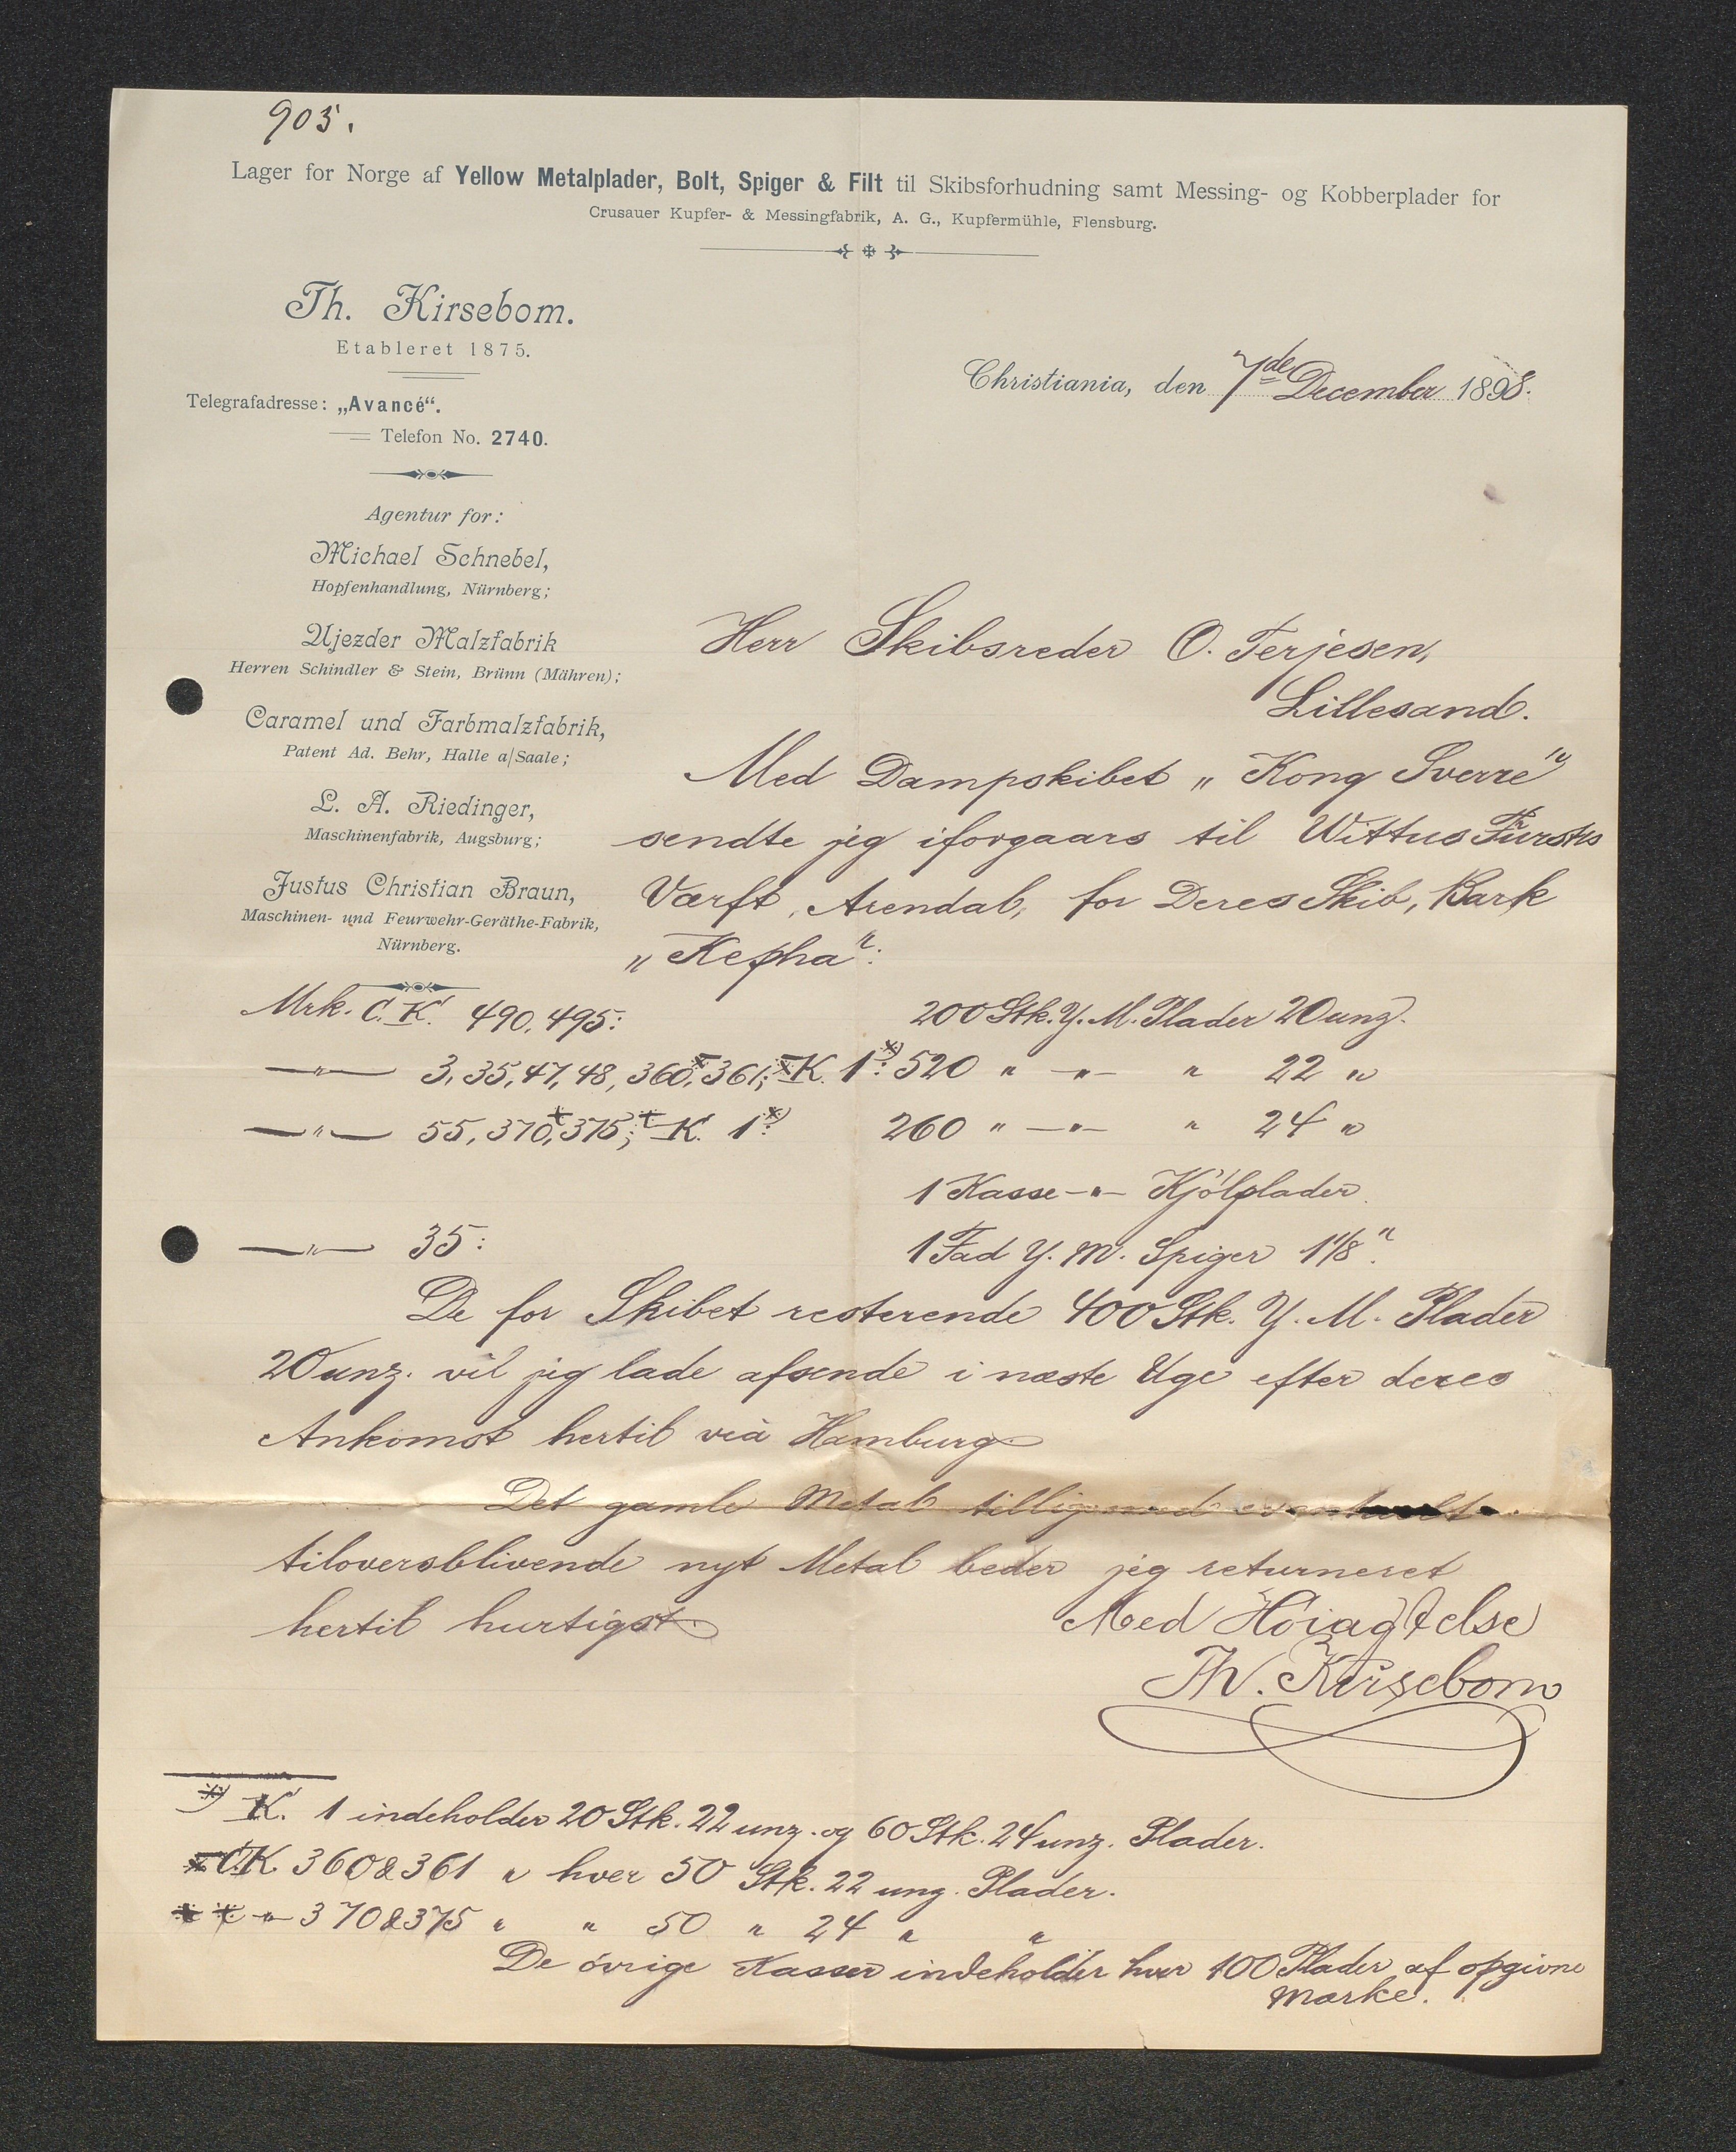 905.
Lager for Norge af Yellow Metalplader, Bolt, Spiger & Filt til Skibsforhudning samt Messing- og Kobberplader for
Crusauer Kupfer- & Messingfabrik, A. G., Kupfermühle, Flensburg.
Th. Kirsebom.
Etableret 1875.
Telegrafadresse: „Avancé“.
Telefon No. 2740.
Agentur for:
Michael Schnebel,
Hopfenhandlung, Nürnberg;
Ujezder Malzfabrik
Herren Schindler & Stein, Brünn (Mähren);
Caramel und Farbmalzfabrik,
Patent Ad. Behr, Halle a/Saale;
L. A. Riedinger,
Maschinenfabrik, Augsburg;
Justus Christian Braun,
Maschinen- und Feurwehr-Geräthe-Fabrik,
Nürnberg.
Christiania, den 7de December 1898.
Herr Skibsreder O. Terjesen,
Lillesand.
Med Dampskibet „Kong Sverre"
sendte jeg iforgaars til Wittus Fürsts
Værft, Arendal, for Deres Skib, Bark
„Kepha":
Mrk. C.K. 490, 495: 200 Stk. Y. M. Plader 20 unz.
—"— 3, 35, 47, 48, 360, 361; K. 1*): 520 " —"— " 22 "
—"— 55, 370, 375; K. 1*): 260 " —"— " 24 "
1 Kasse —"— Kjølplader.
—"— 35: 1 Fad Y. M. Spiger 1 1/8".
De for Skibet resterende 400 Stk. Y. M. Plader
20 unz. vil jeg lade afsende i næste Uge efter deres
Ankomst hertil via Hamburg.
Det gamle Metal tilligemed eventuelt
tiloversblivende nyt Metal beder jeg returneret
hertil hurtigst.
Med Høiagtelse
Th. Kirsebom
*) K. 1 indeholder 20 Stk. 22 unz. og 60 Stk. 24 unz. Plader.
C.K. 360 & 361 " hver 50 Stk. 22 unz. Plader.
" 370 & 375 " " 50 " 24 " "
De øvrige Kasser indeholder hver 100 Plader af opgivne
Mærke.